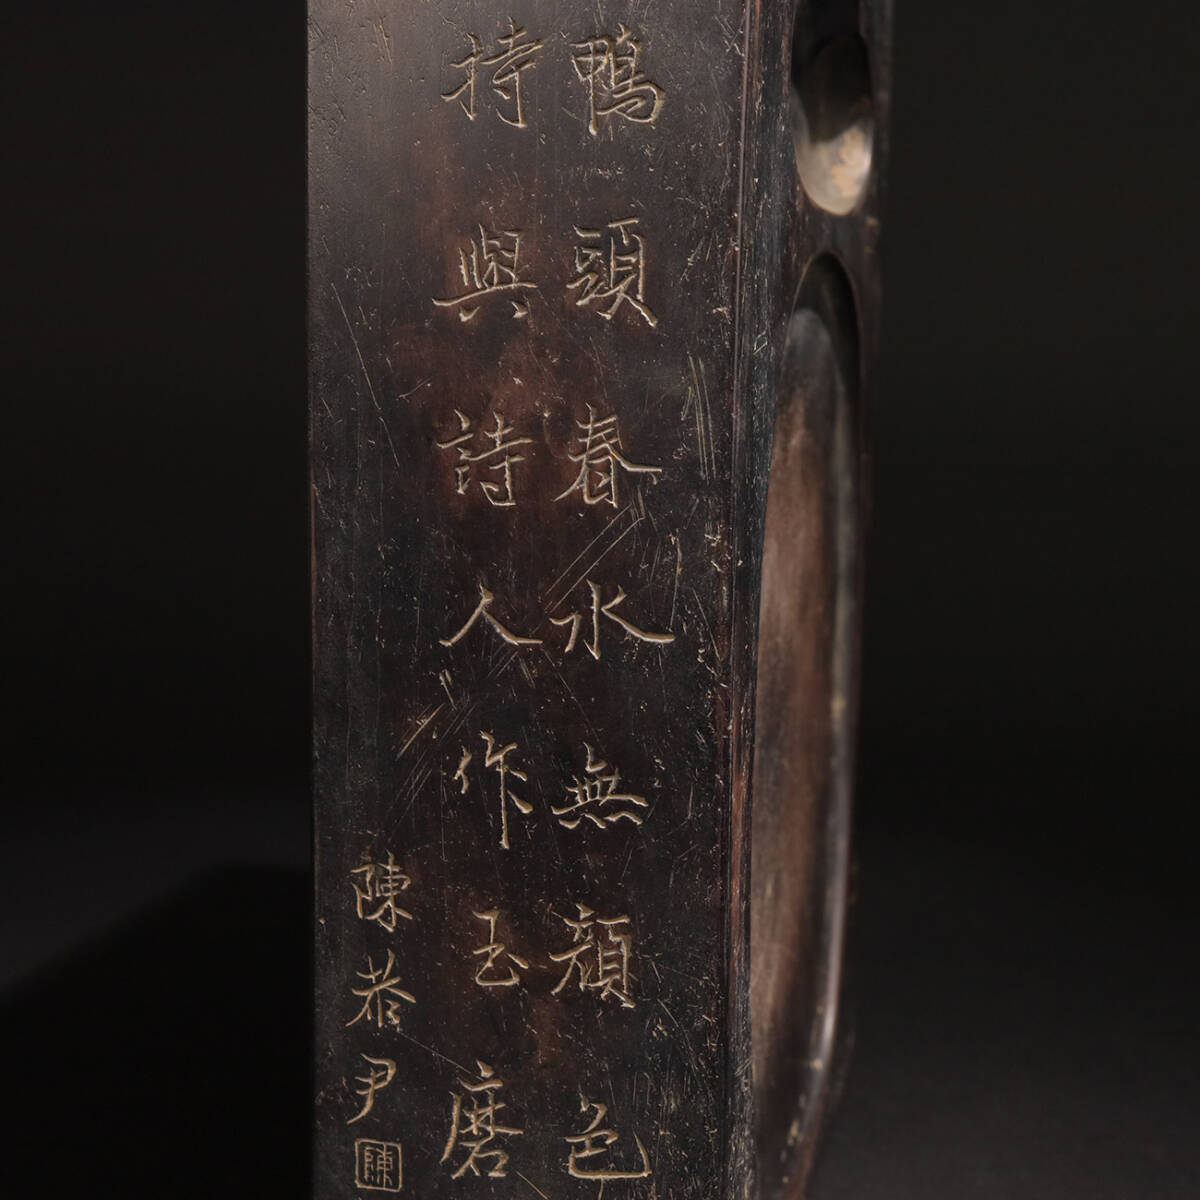 鴨頭春水無顏色
持與詩人作玉磨
陳恭尹
陳